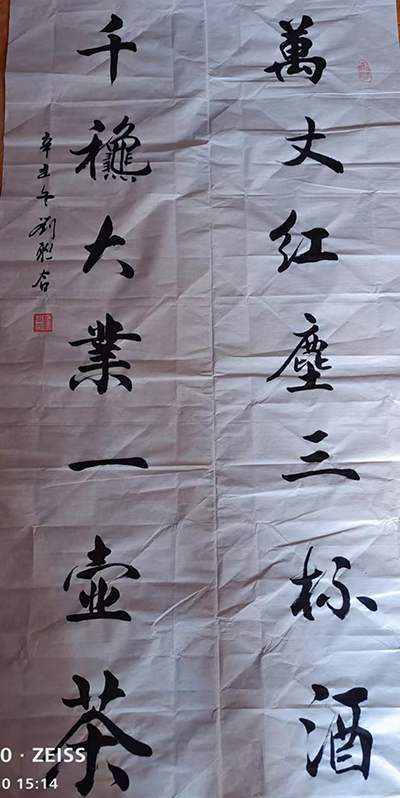 萬丈紅塵三杯酒
千龝大業一壺茶
辛丑冬劉合
0 · ZEISS
0 15:14